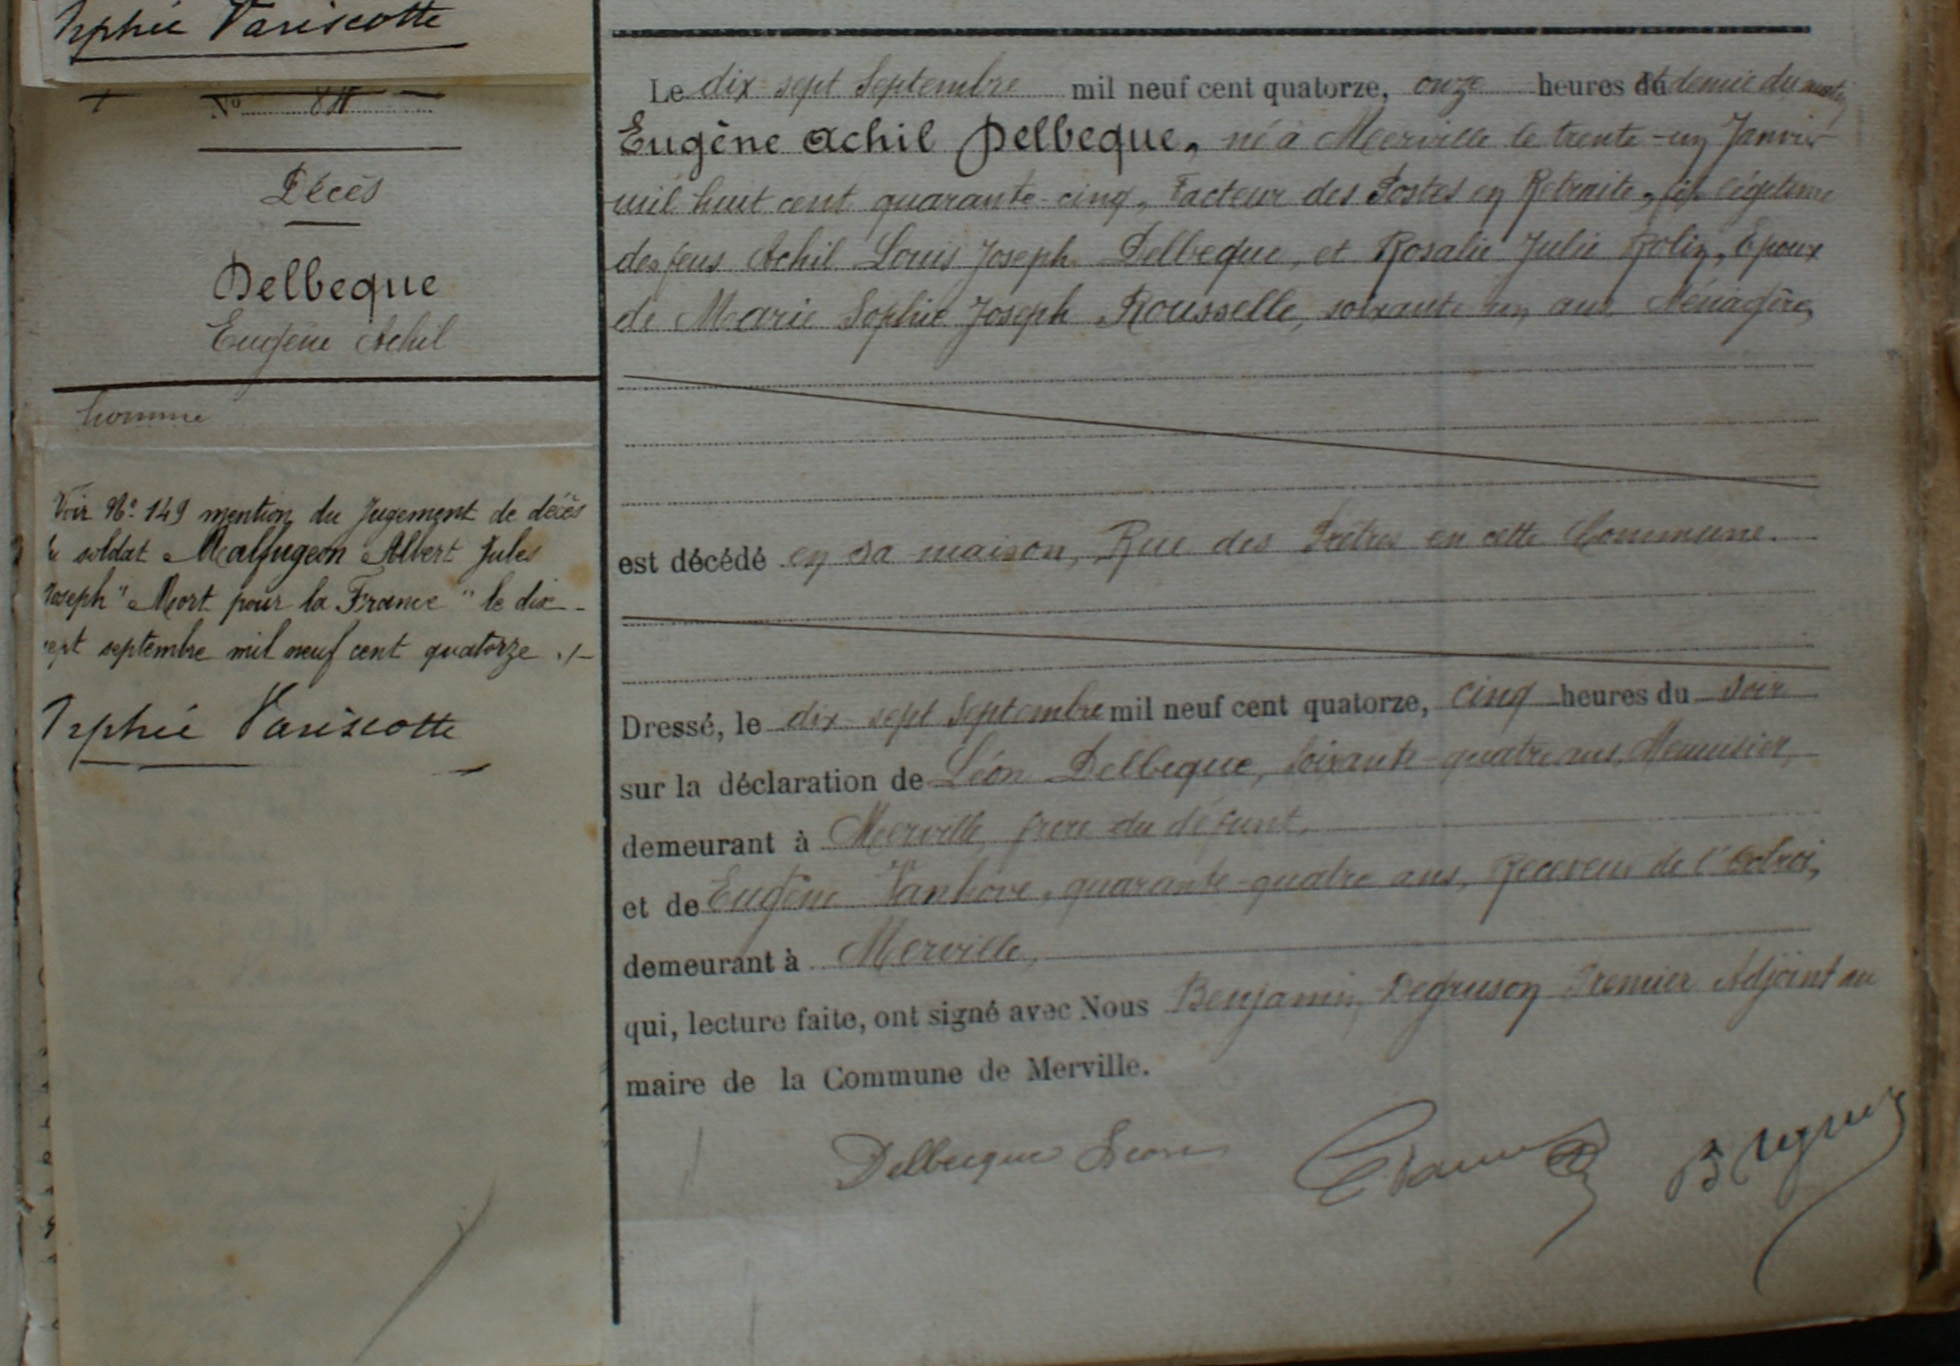 Orphée Variscotte
N° 84
Décès
Delbeque
Eugène Achil
homme
Voir N° 149 mention du Jugement de décès
du soldat Malfugeon Albert Jules
Joseph "Mort pour la France" le dix-
sept septembre mil neuf cent quatorze ./-
Orphée Variscotte
Le dix-sept Septembre mil neuf cent quatorze, onze heures et demie du matin,
Eugène Achil Delbeque, né à Merville le trente-un Janvier
mil huit cent quarante-cinq, Facteur des Postes en Retraite, fils légitime
des feus Achil Louis Joseph Delbeque, et Rosalie Julie Rolin, Epoux
de Marie Sophie Joseph Rousselle, soixante un ans Ménagère,
est décédé en sa maison, Rue des Prêtres en cette Commune.
Dressé, le dix-sept Septembre mil neuf cent quatorze, cinq heures du soir
sur la déclaration de Léon Delbeque, soixante-quatre ans, Menuisier,
demeurant à Merville, frère du défunt,
et de Eugène Vanhove, quarante-quatre ans, Receveur de l'Octroi,
demeurant à Merville,
qui, lecture faite, ont signé avec Nous Benjamin Degruson Premier Adjoint au
maire de la Commune de Merville.
Delbecque Leon